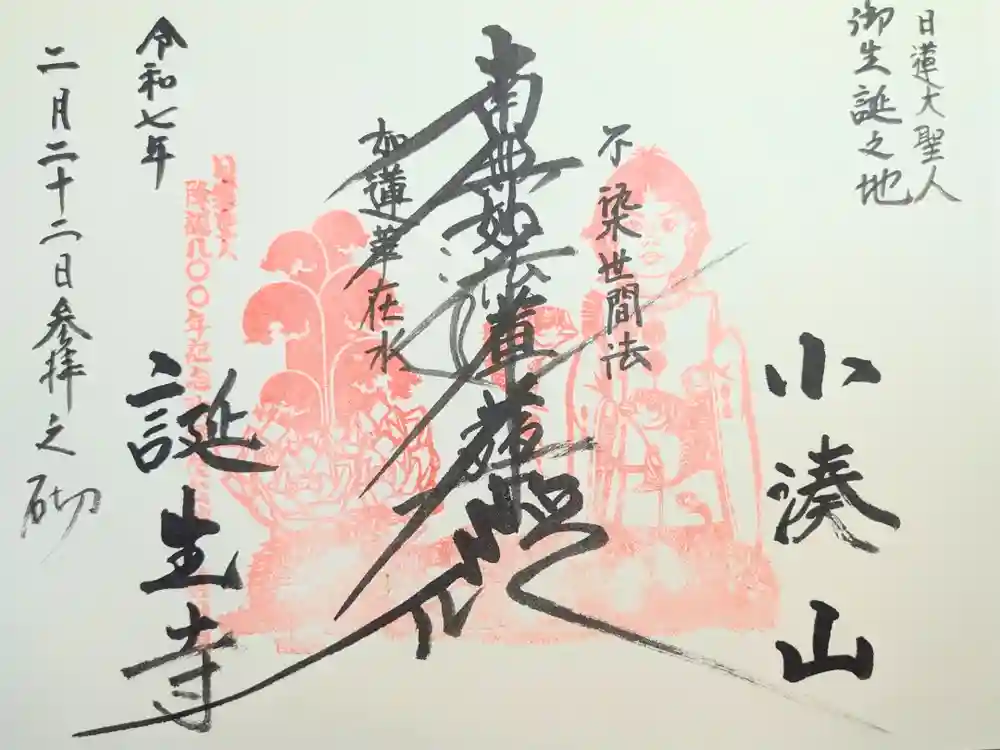 日蓮大聖人
御生誕之地
小湊山
不染世間法
南無妙法蓮華経
如蓮華在水
降誕八〇〇年記念
誕生寺
令和七年
二月二十二日参拝之砌